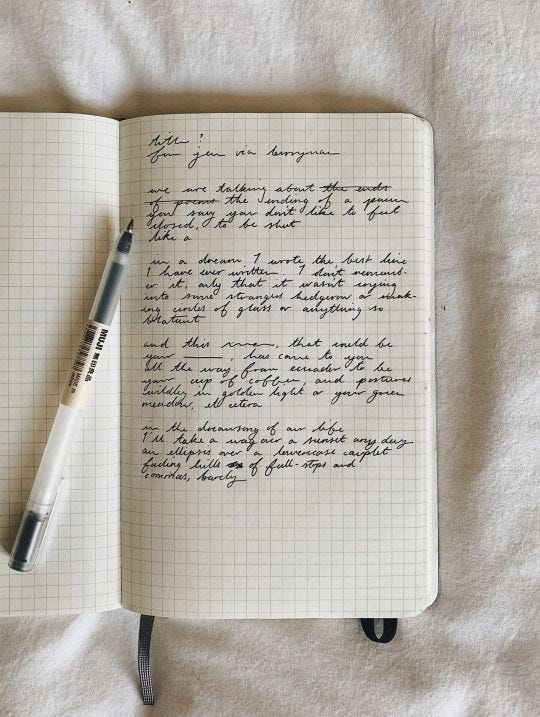 title ?
for jen via berryman
we are talking about the ends
of poems the ending of a poem
you say you don't like to feel
closed, to be shut
like a
in a dream I wrote the best line
I have ever written. I don't rememb-
er it, only that it wasn't crying
into some strangers hedgerow or mak-
ing circles of glass or anything so
blatant
and this , that could be
your ____, has come to you
all the way from ecuador to be
your cup of coffee, and postures
wildly in golden light or your green
meadow, et cetera
in the dreamsong of our life
I'll take a over a sunset any day
an ellipses over a lowercase couplet
fading hills of full-stops and
commas, barely
MUJI 無印良品